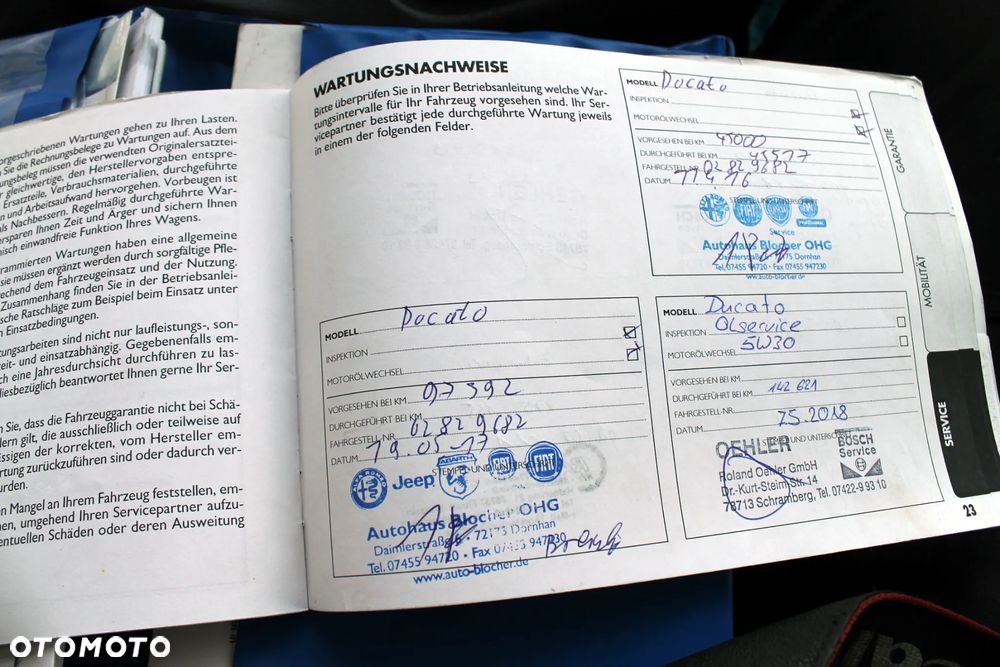 orgeschriebenen Wartungen gehen zu Ihren Lasten.
Sie die Rechnungsbelege zu Wartungen auf. Aus dem
ungsbeleg müssen die verwendeten Originalersatztei-
gleichwertige, den Herstellervorgaben entspre-
Ersatzteile, Verbrauchsmaterialien, durchgeführte
und Arbeitsaufwand hervorgehen. Vorbeugen ist
als Nachbessern. Regelmäßig durchgeführte War-
ersparen Ihnen Zeit und Ärger und sichern Ihnen
nisch einwandfreie Funktion Ihres Wagens.
rammierten Wartungen haben eine allgemeine
sie müssen ergänzt werden durch sorgfältige Pfle-
rechend dem Fahrzeugeinsatz und der Nutzung.
Zusammenhang finden Sie in der Betriebsanlei-
sche Ratschläge zum Beispiel beim Einsatz unter
n Einsatzbedingungen.
tungsarbeiten sind nicht nur laufleistungs-, son-
eit- und einsatzabhängig. Gegebenenfalls em-
ch eine Jahresdurchsicht durchführen zu las-
diesbezüglich beantwortet Ihnen gerne Ihr Ser-
n Sie, dass die Fahrzeuggarantie nicht bei Schä-
lern gilt, die ausschließlich oder teilweise auf
ssigen der korrekten, vom Hersteller em-
rtung zurückzuführen sind oder dadurch ver-
urden.
en Mangel an Ihrem Fahrzeug feststellen, em-
nen, umgehend Ihren Servicepartner aufzu-
entuellen Schäden oder deren Ausweitung
WARTUNGSNACHWEISE
Bitte überprüfen Sie in Ihrer Betriebsanleitung welche War-
tungsintervalle für Ihr Fahrzeug vorgesehen sind. Ihr Ser-
vicepartner bestätigt jede durchgeführte Wartung jeweils
in einem der folgenden Felder.
MODELL Ducato
INSPEKTION
MOTORÖLWECHSEL
VORGESEHEN BEI KM 45000
DURCHGEFÜHRT BEI KM 45517
FAHRGESTELL-NR. 02829682
DATUM 11.4.16
STEMPEL UND UNTERSCHRIFT
FIAT
PROFESSIONAL
Service
Autohaus Blocher OHG
Daimlerstraße 6 · 72175 Dornhan
Tel. 07455 94720 · Fax 07455 947230
www.auto-blocher.de
MODELL Ducato
INSPEKTION
MOTORÖLWECHSEL
VORGESEHEN BEI KM 97392
DURCHGEFÜHRT BEI KM
FAHRGESTELL-NR. 02829682
DATUM 19.05.17
STEMPEL UND UNTERSCHRIFT
ALFA ROMEO
Jeep
ABARTH
FIAT
FIAT
Autohaus Blocher OHG
Daimlerstraße 6 · 72175 Dornhan
Tel. 07455 94720 · Fax 07455 947230
www.auto-blocher.de
MODELL Ducato
INSPEKTION Ölservice
MOTORÖLWECHSEL 5W30
VORGESEHEN BEI KM
DURCHGEFÜHRT BEI KM 142 621
FAHRGESTELL-NR.
DATUM 7.5.2018
STEMPEL UND UNTERSCHRIFT
OEHLER
BOSCH
Service
Roland Oehler GmbH
Dr.-Kurt-Steim-Str. 14
78713 Schramberg, Tel. 07422-9 93 10
GARANTIE
MOBILITÄT
SERVICE
23
OTOMOTO